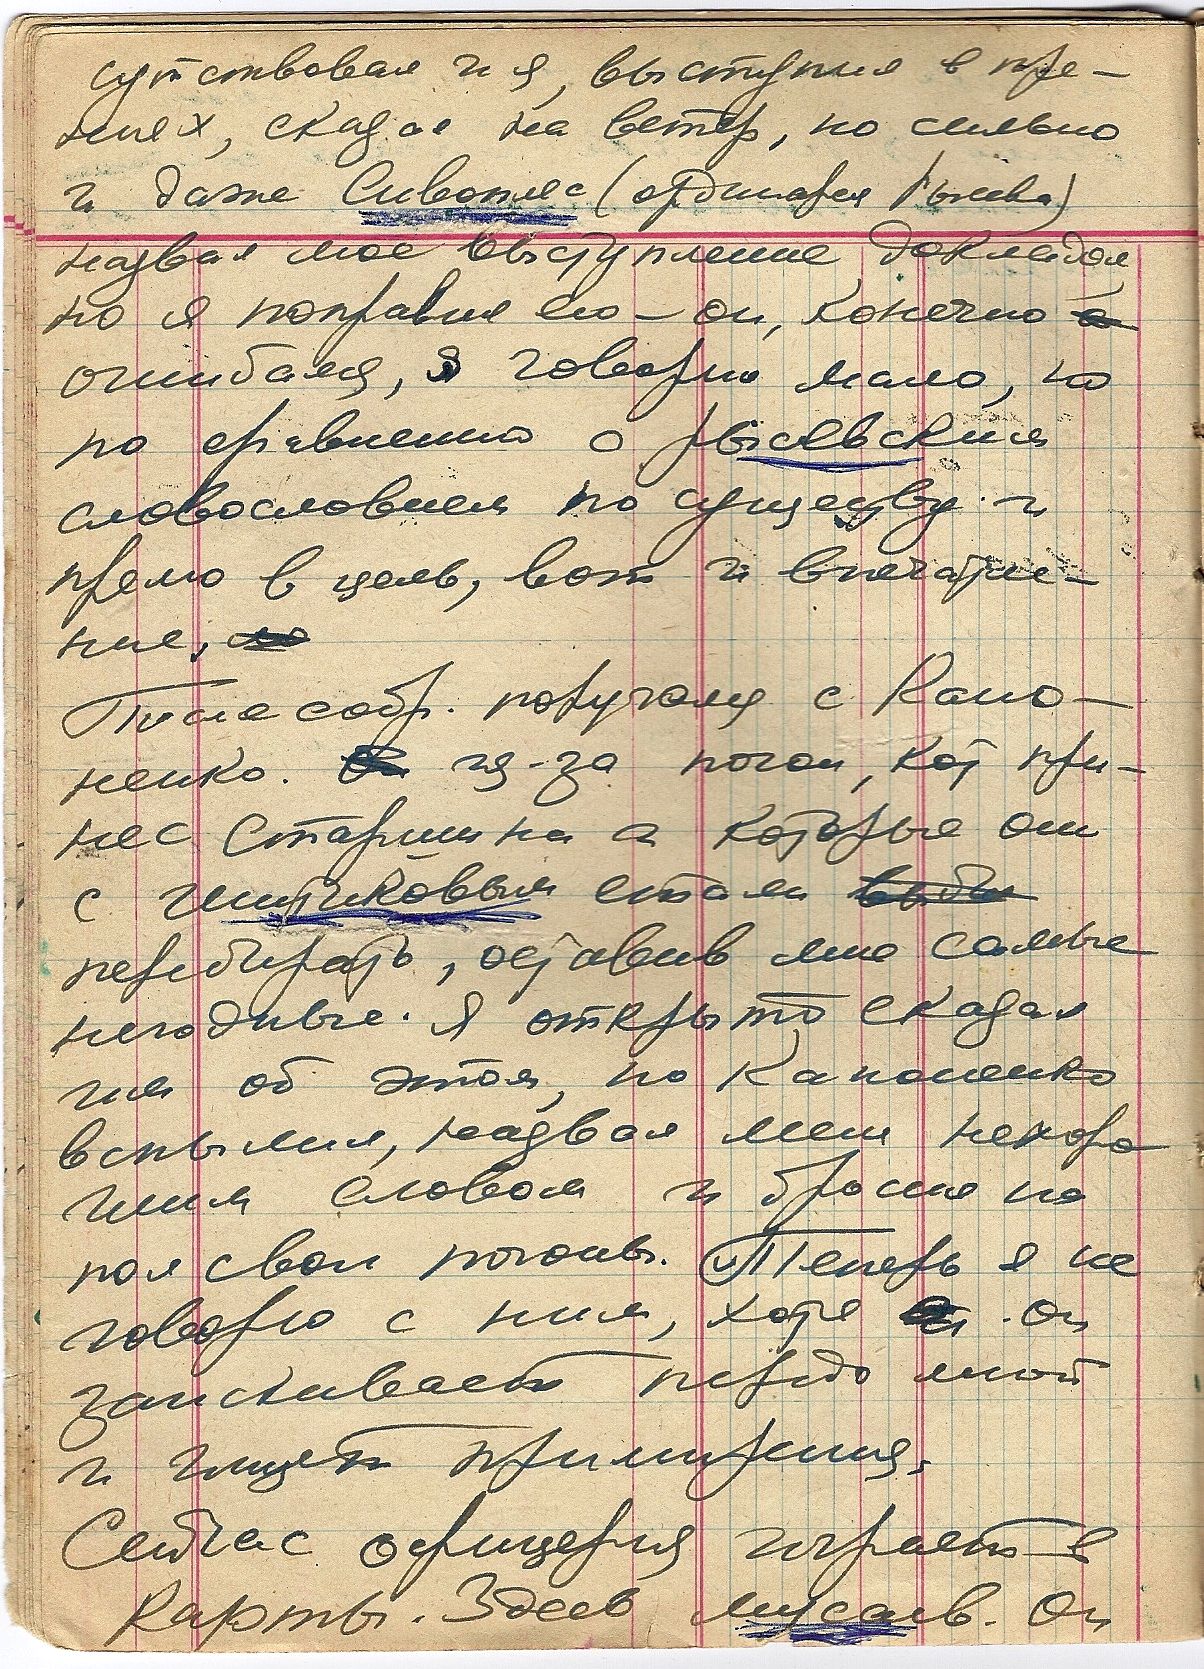 сутствовал и я, выступил в пре-
ниях, сказал на ветер, но сильно
и даже Сивопляс (ординарец Рысева)
назвал мое выступление докладом,
но я поправил его – он, конечно
ошибался, я говорил мало, но
по сравнению с рысевским
словословием по существу и
прямо в цель, вот и впечатле-
ние.
После собр. поругался с Капо-
ненко. из-за погон, кот при-
нес старшина а которые они
с Шитиковым стали
перебирать, оставив мне самые
негодные. Я открыто сказал
им об этом, но Капоненко
вспылил, назвал меня нехоро
шим словом и бросил на
пол свои погоны. Теперь я не
говорю с ним, хотя он
заискивает передо мной
и ищет примирения.
Сейчас офицерия играет в
карты. Здесь Мусаев. Он